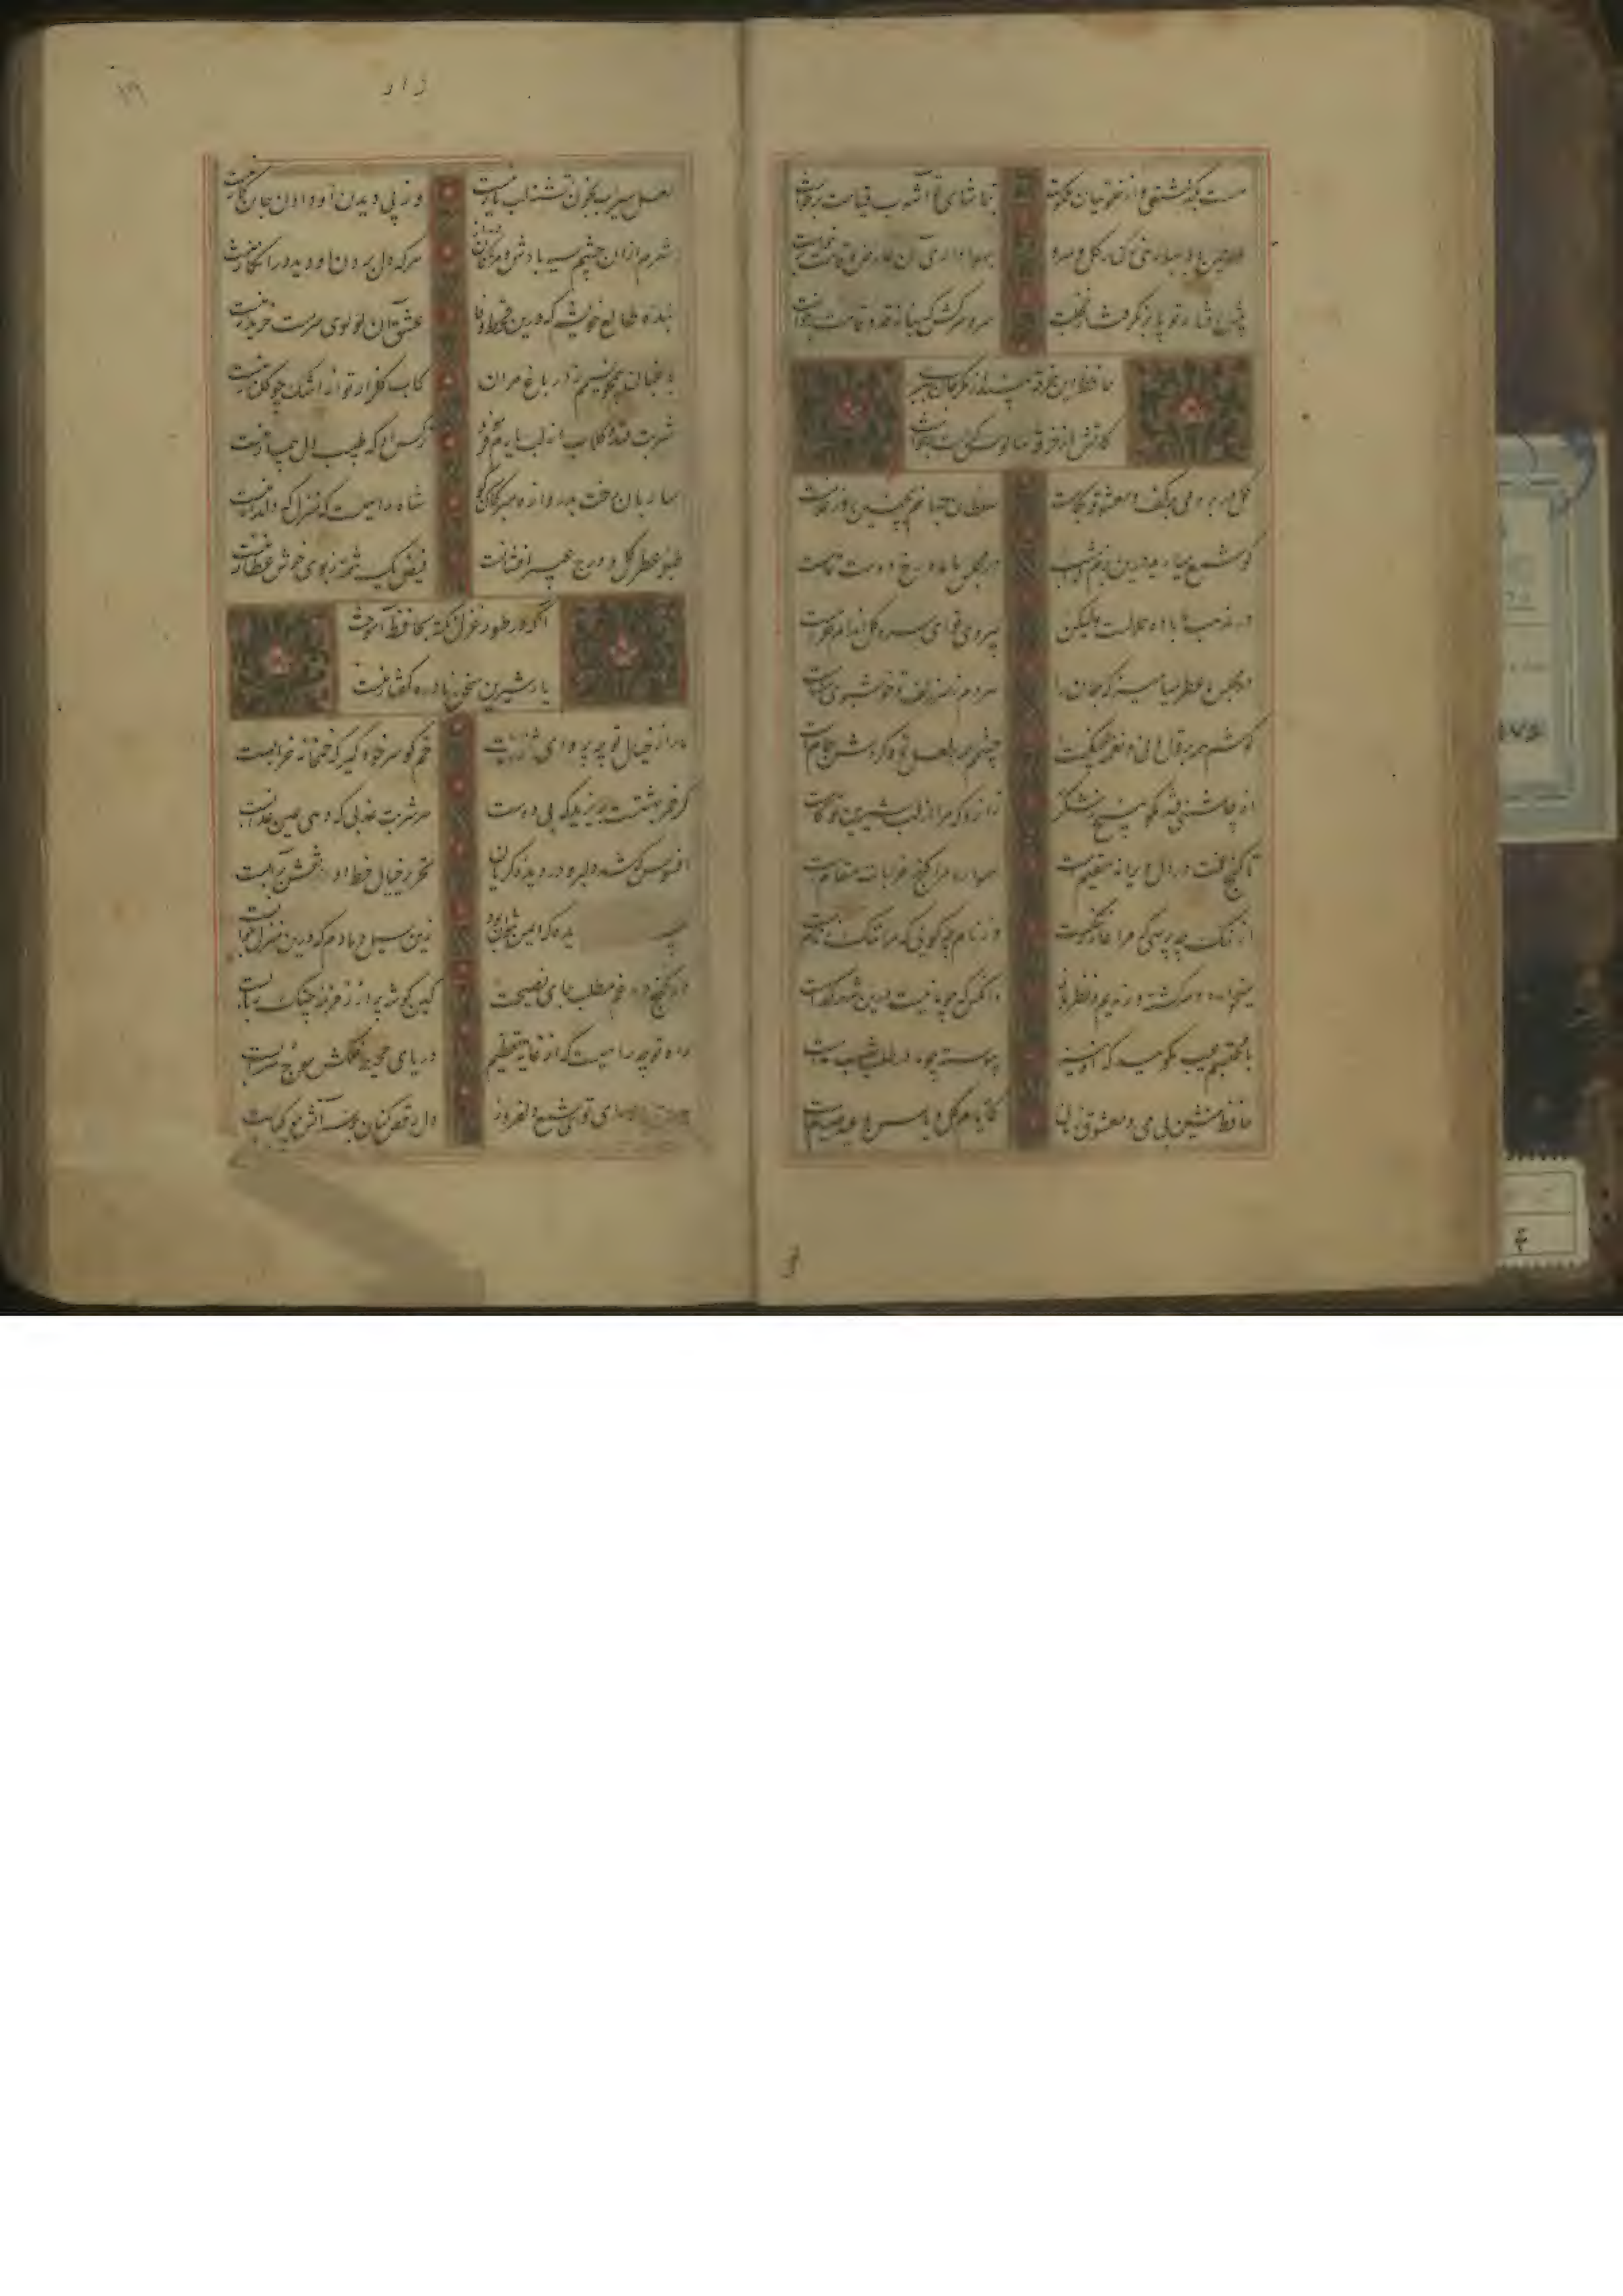 مست بگذشتی و از خلوتیان ملکوت
بتماشای تو آشوب قیامت برخاست
پیش رفتار تو پا برنگرفت از خجلت
سرو سرکش که بناز قد و قامت برخاست
حافظ این خرقه بینداز مگر جان ببری
کاتش از خرقه سالوس کرامت برخاست
گل در بر و می بر کف و معشوقه بکامست
سلطان جهانم بچنین روز غلامست
گو شمع میارید درین بزم که امشب
در مجلس ما ماه رخ دوست تمامست
در مذهب ما باده حلالست ولیکن
بی روی تو ای سرو گل اندام حرامست
در مجلس ما عطر میامیز که جان را
هر دم ز سر زلف تو خوشبوی مشامست
گوشم همه بر قول نی و نغمه چنگست
چشمم همه بر لعل تو و گردش جامست
از چاشنی قند مگو هیچ و ز شکر
زانرو که مرا از لب شیرین تو کامست
تا گنج غمت در دل ویرانه مقیمست
همواره مرا کنج خرابات مقامست
از ننگ چه پرسی که مرا نام ز ننگست
وز نام چه گوئی که مرا ننگ ز نامست
میخواره و سرگشته و رندیم و نظرباز
وانکس که چو ما نیست درین شهر کدامست
با محتسبم عیب مگوئید که او نیز
پیوسته چو ما در طلب عیش مدامست
حافظ منشین بی می و معشوق زمانی
کایام گل و یاسمن و عید صیامست
زار
لعل سیراب بخون تشنه لب یار منست
وز پی دیدن او دادن جان کار منست
شرم از آن چشم سیه بادش و مژگان دراز
هر که دل بردن او دید و در انکار منست
بنده طالع خویشم که درین قحط وفا
عشق آن لولی سرمست خریدار منست
باغبان همچو نسیمم ز در باغ مران
کاب گلزار تو از اشک چو گلنار منست
شربت قند و گلاب از لب یارم فرمود
نرگس او که طبیب دل بیمار منست
ساربان رخت بدروازه مبر کان سر کو
شاه راهیست که منزلگه دلدار منست
طبله عطر گل و درج عبیر افشانت
فیض یک شمه ز بوی خوش عطار منست
آنکه در طرز غزل نکته بحافظ آموخت
یار شیرین سخن نادره گفتار منست
ما را ز خیال تو چه پروای شرابست
خم گو سر خود گیر که خمخانه خرابست
گر خمر بهشتست بریزید که بی دوست
هر شربت عذبی که دهی عین عذابست
افسوس که شد دلبر و در دیده گریان
تحریر خیال خط او نقش بر آبست
دیده که ایمن نتوان بود
زین سیل دمادم که درین منزل خوابست
در کنج دماغم مطلب جای نصیحت
کین گوشه پر از زمزمه چنگ و ربابست
راه تو چه راهیست که از غایت تعظیم
دریای محیط فلکش موج سرابست
روی تو ای شمع دلفروز
دل رقص کنان بر سر آتش چو کبابست